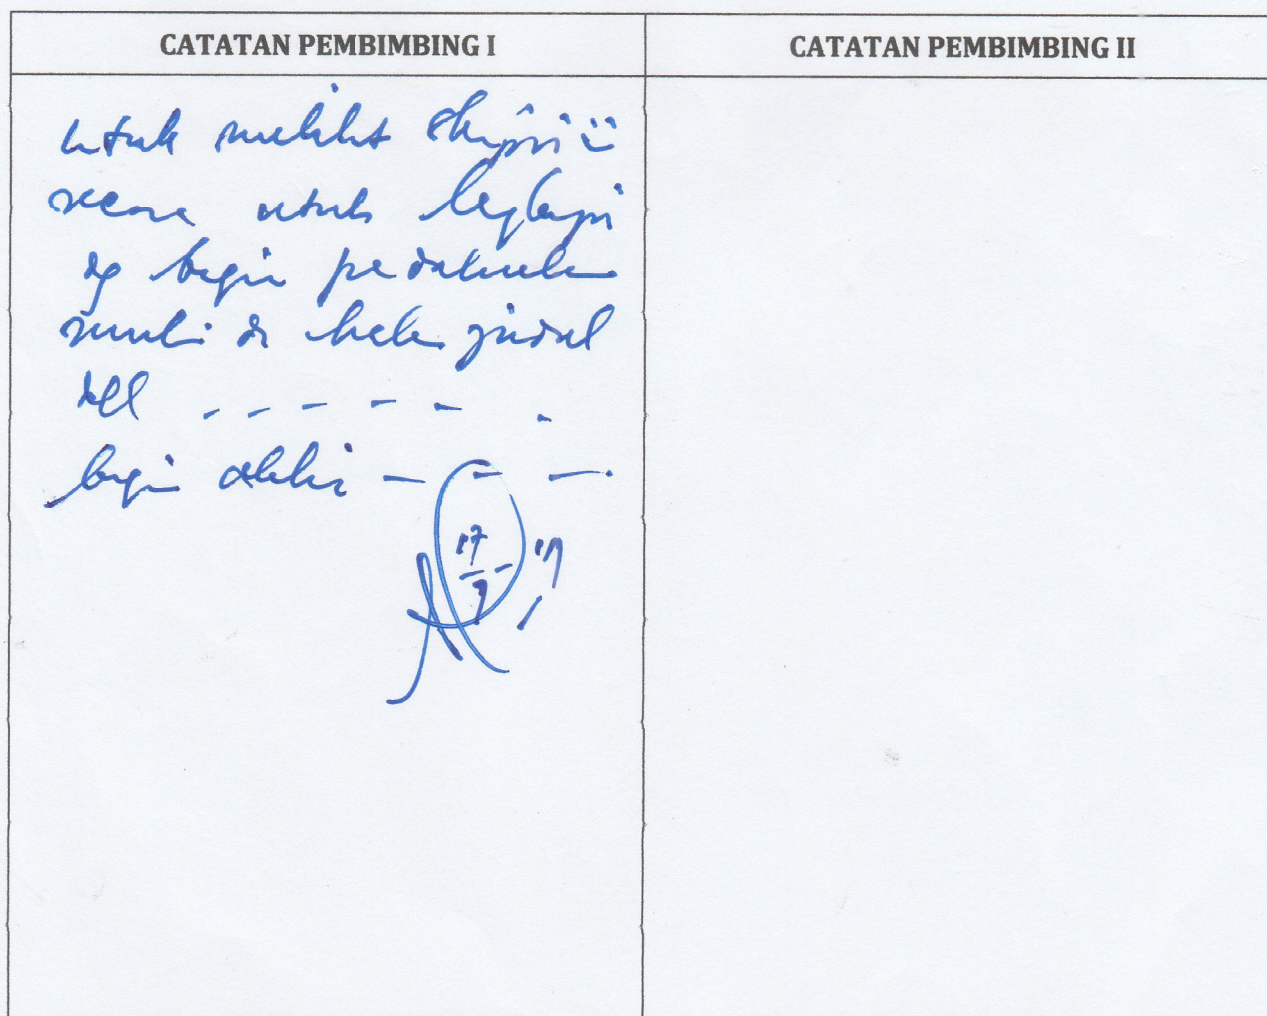 CATATAN PEMBIMBING I
CATATAN PEMBIMBING II
untuk melihat skripsi ini
secara utuh lengkapi
dg bagian pendahuluan
mulai dr hal judul
dll - - - - - -
bagian akhir - - -
17/7-17